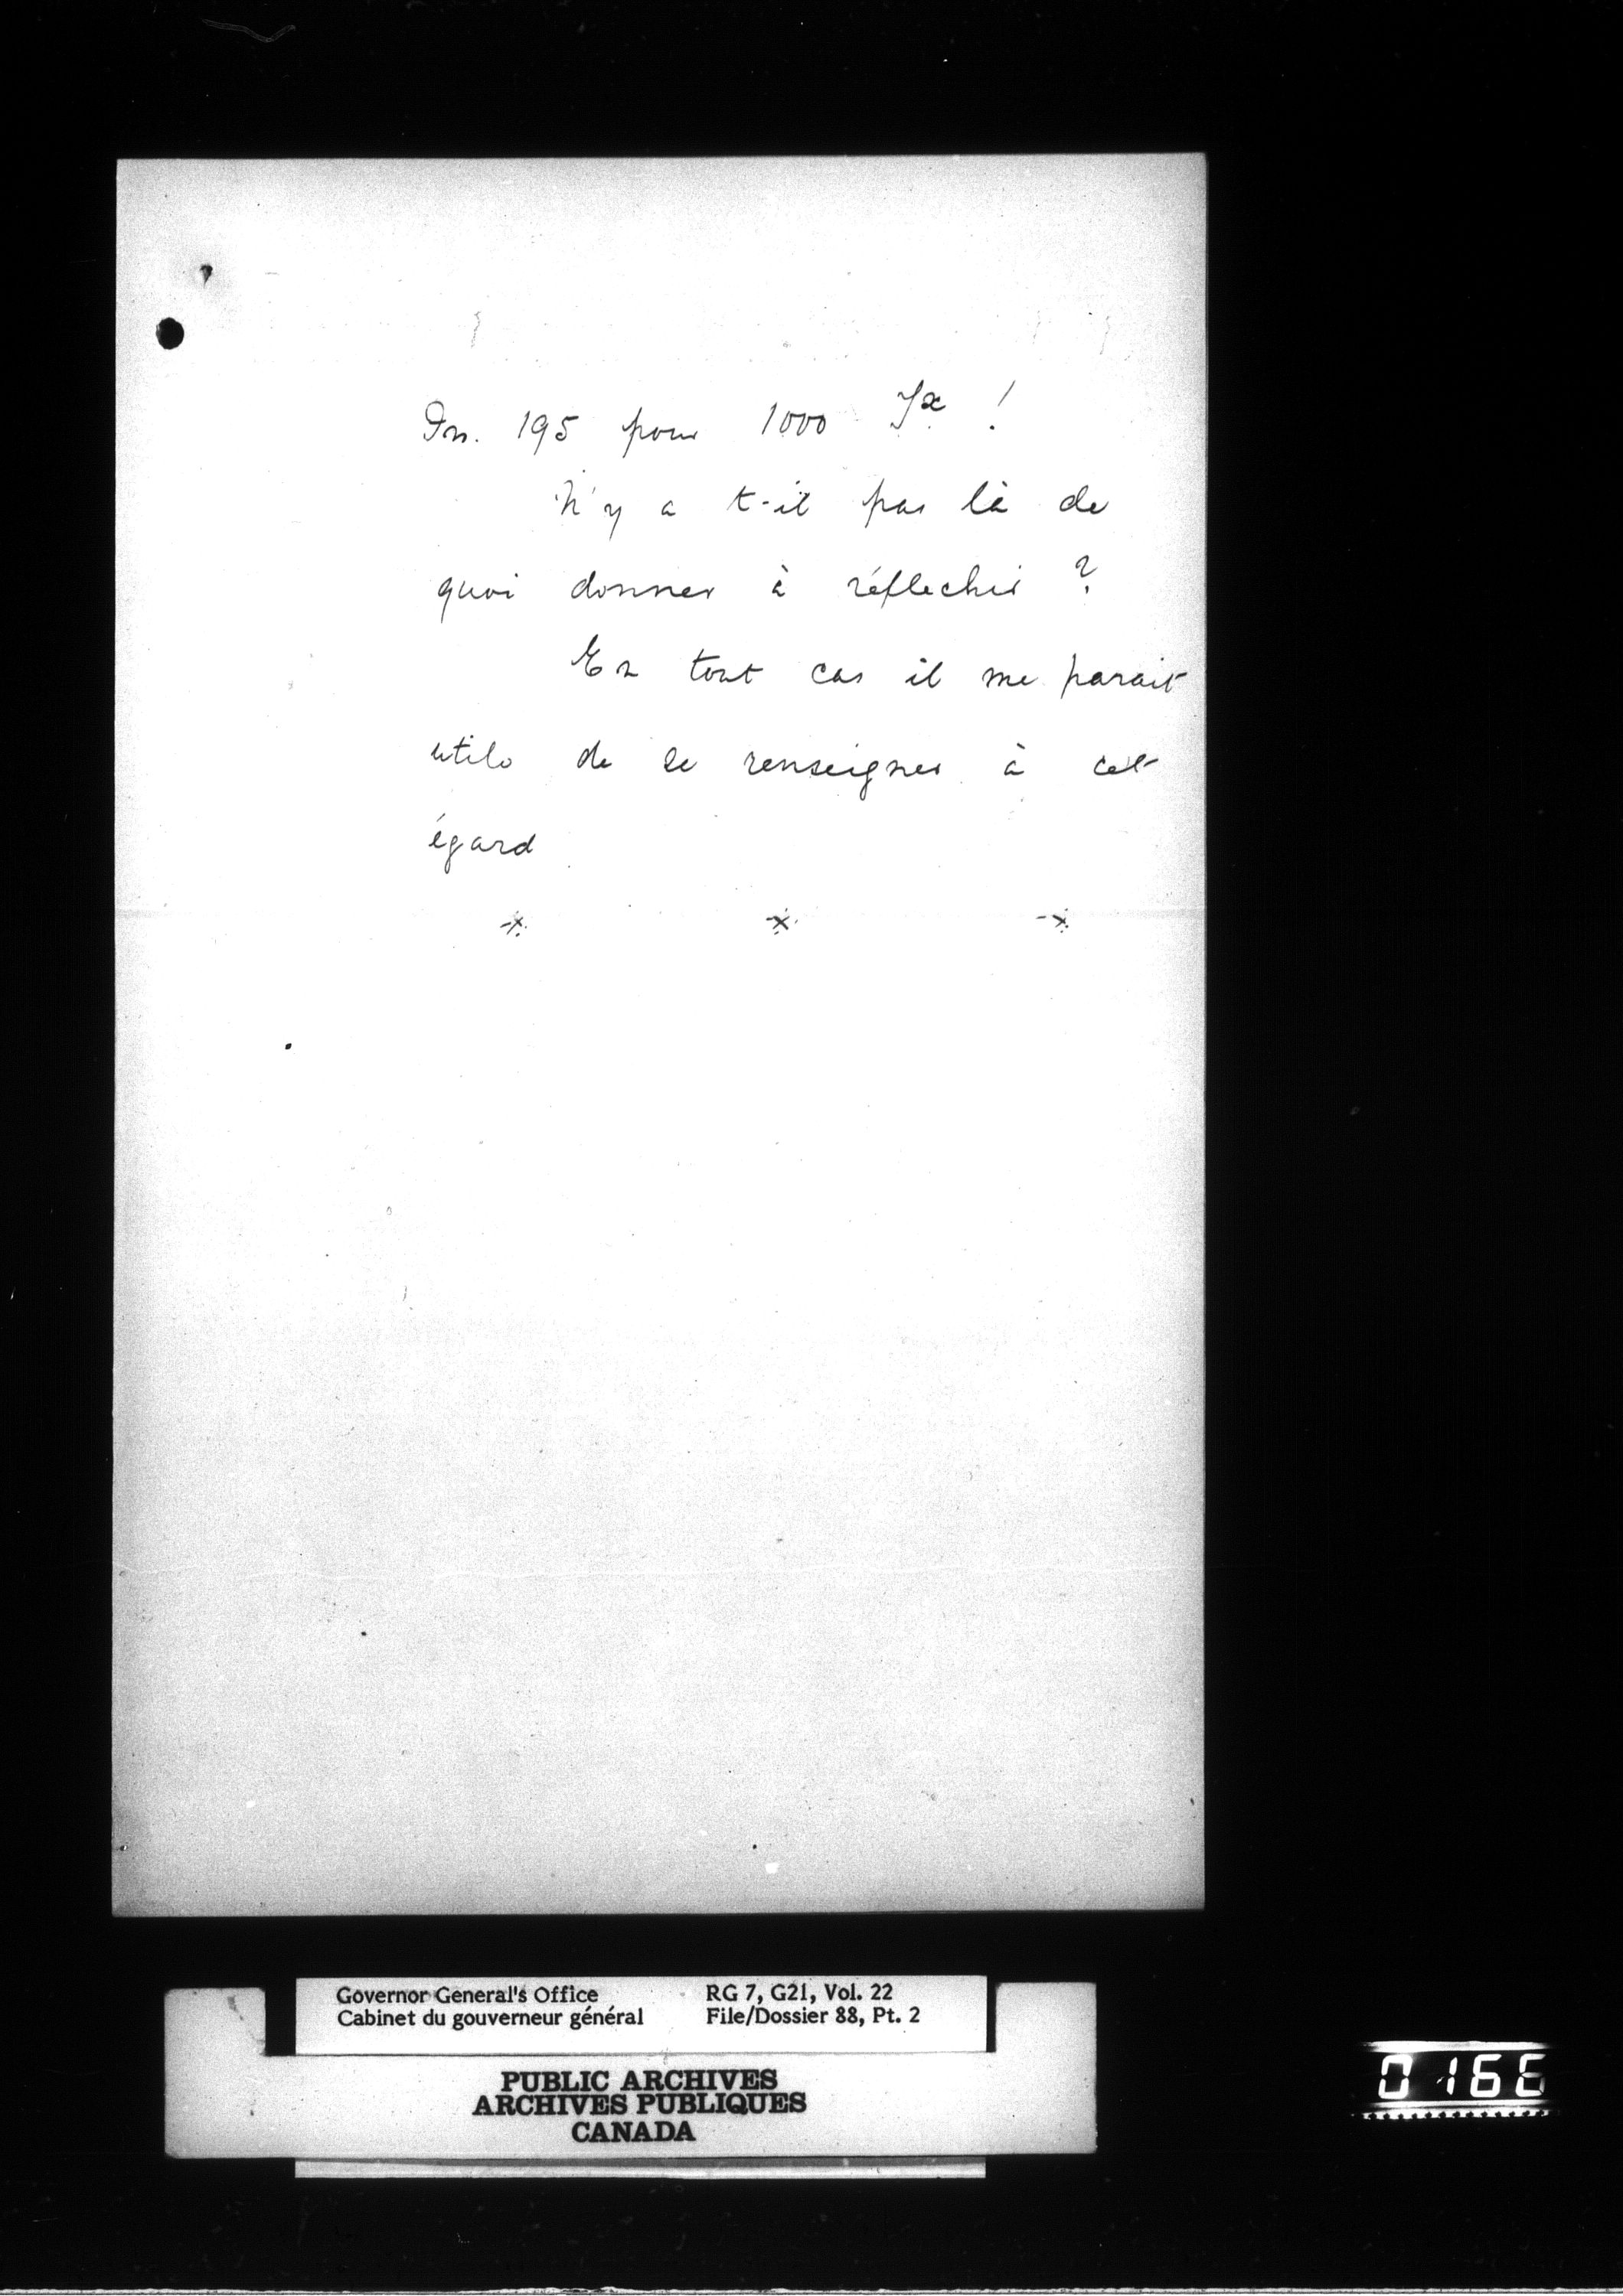 195 pour 1000 !
N'y a t-il pas là de
quoi donner à réflechir ?
En tout cas il me parait
utile de se renseigner à cet
égard
* * *
Governor General's Office RG 7, G21, Vol. 22
Cabinet du gouverneur général File/Dossier 88, Pt. 2
PUBLIC ARCHIVES
ARCHIVES PUBLIQUES
CANADA